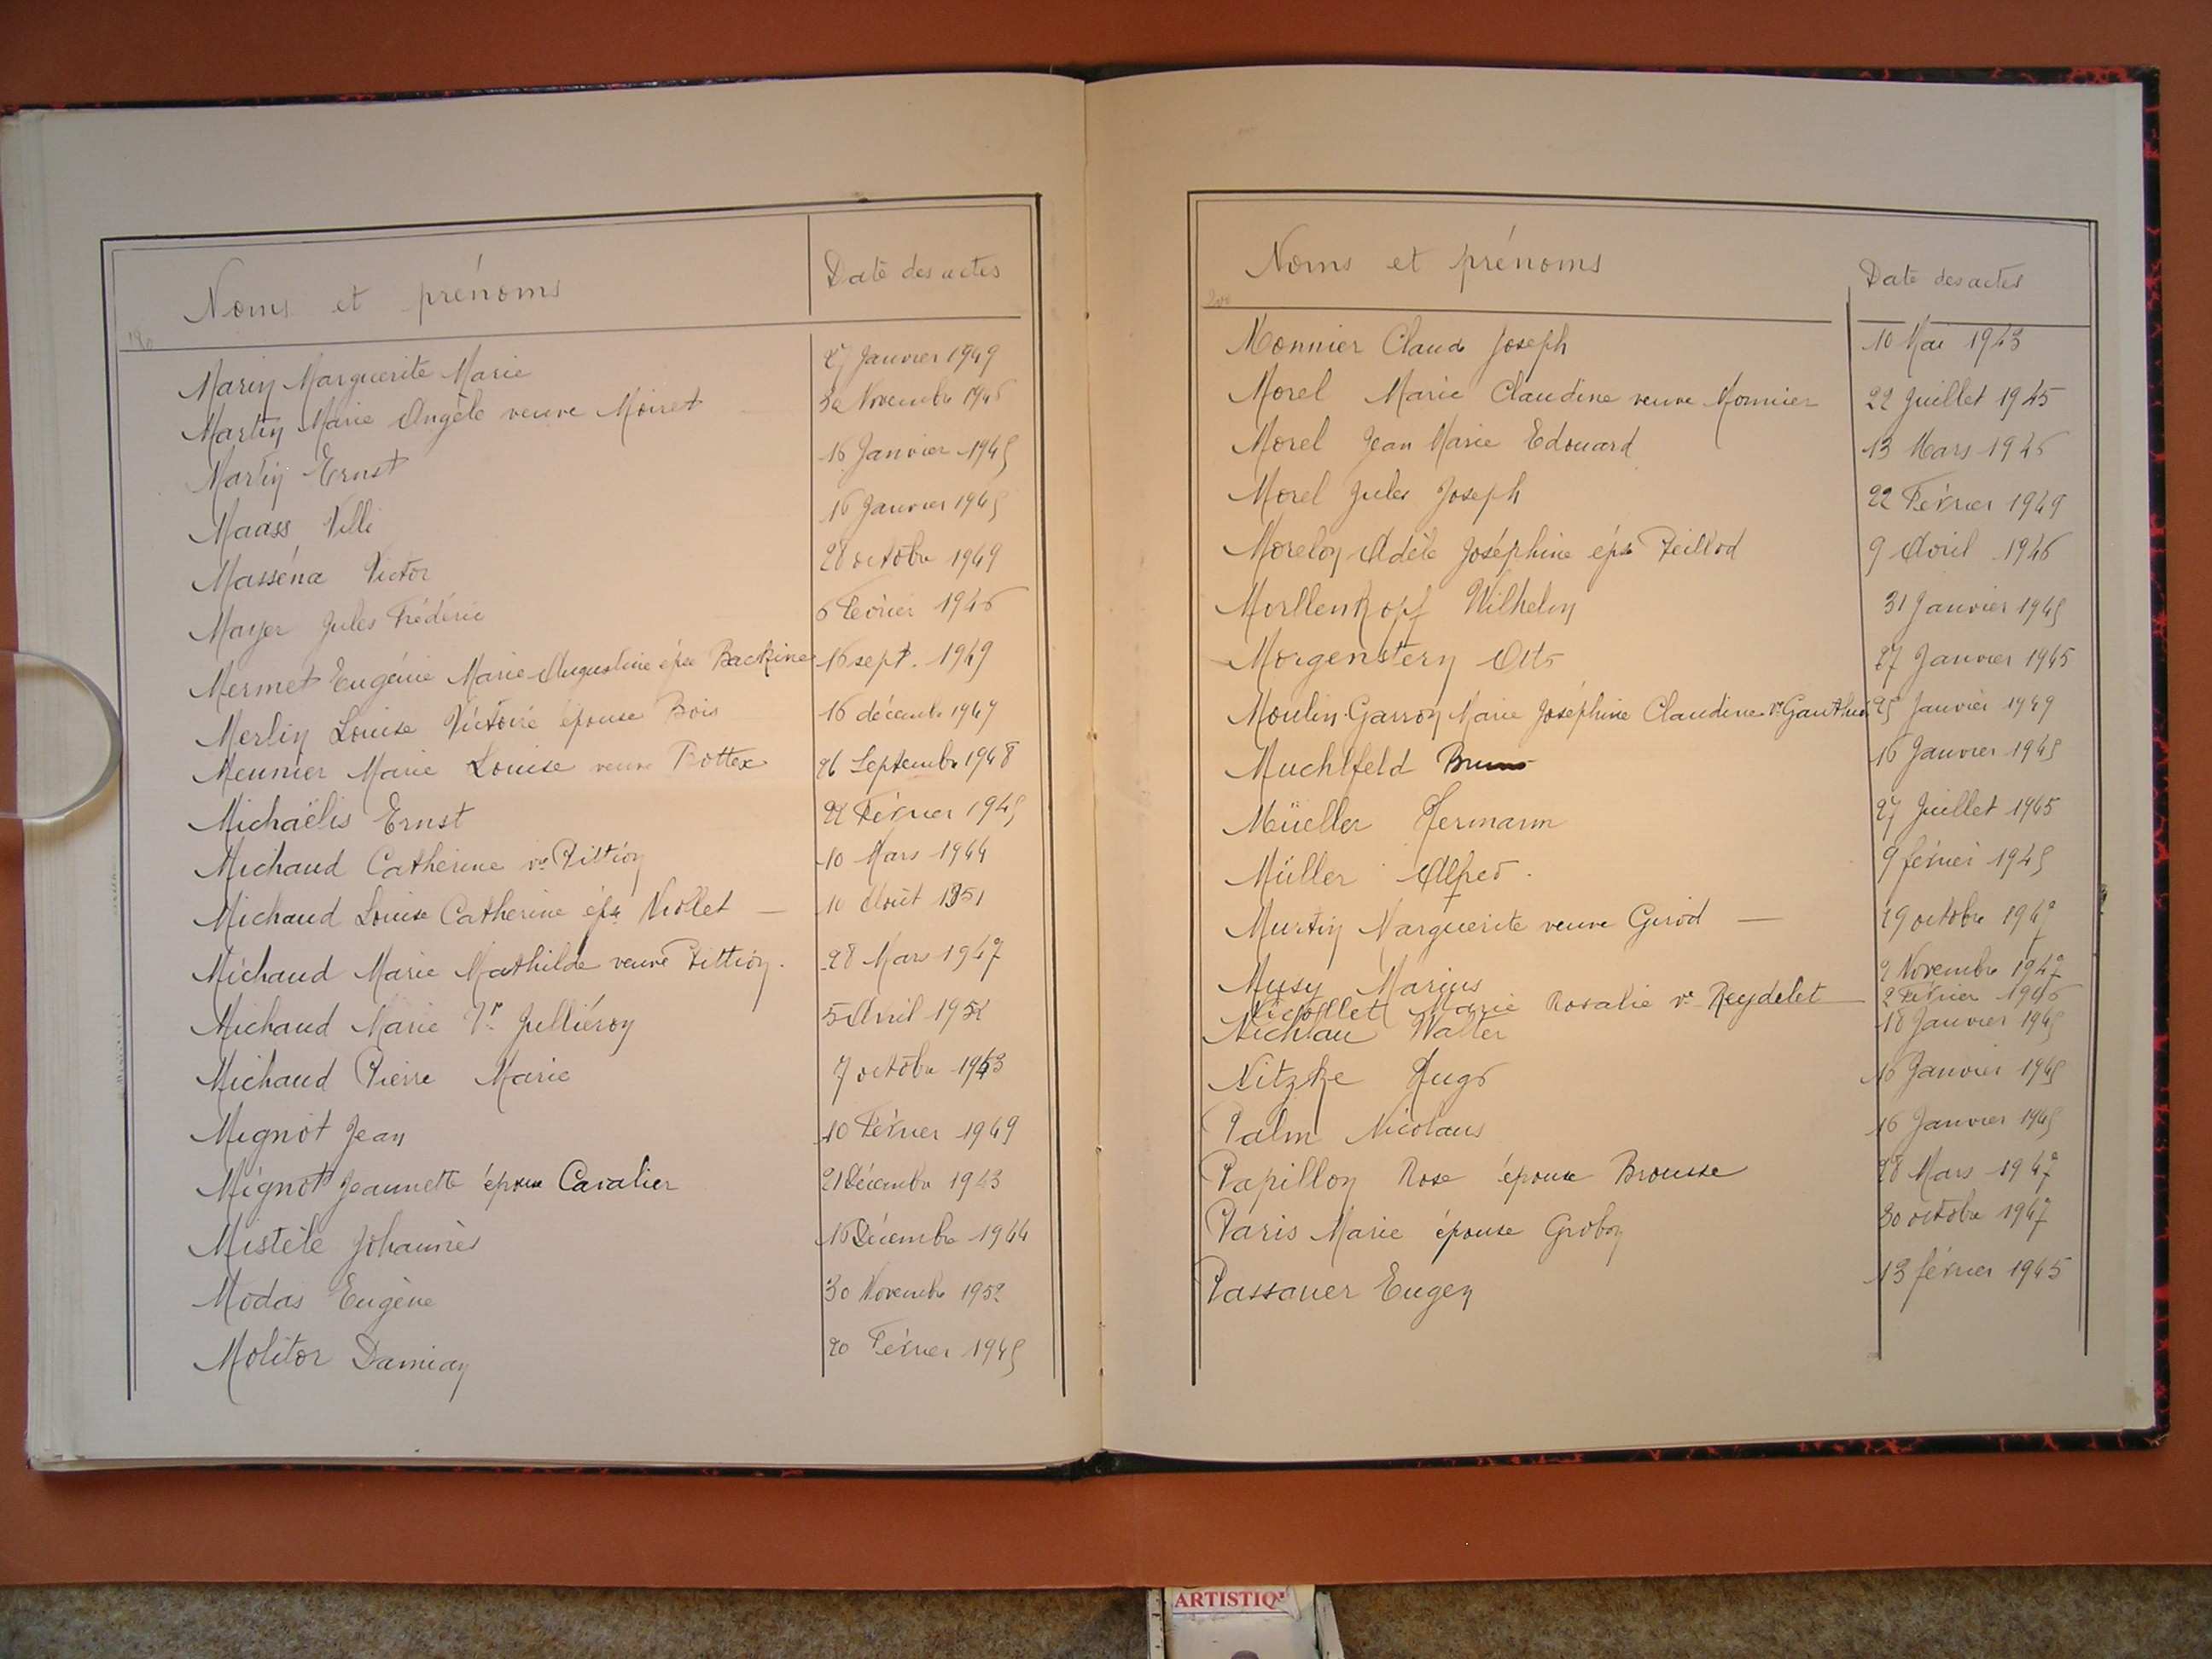 Noms et prénoms Date des actes
190
Marin Marguerite Marie 27 Janvier 1949
Martin Marie Angèle veuve Moiret 30 Novembre 1946
Martin Ernst 16 Janvier 1945
Maass Villi 16 Janvier 1945
Masséna Victor 28 octobre 1949
Mayer Jules Frédéric 6 Février 1946
Mermet Eugénie Marie Augustine épse Backine 16 sept. 1949
Merlin Louise Victoire épouse Bois 16 décembre 1949
Meunier Marie Louise veuve Bottex 26 Septembre 1948
Michaëlis Ernst 22 Février 1945
Michaud Catherine vve Pittion 10 Mars 1944
Michaud Louise Catherine épse Niollet — 10 Août 1951
Michaud Marie Mathilde veuve Pittion. 28 Mars 1947
Michaud Marie Vve Julliéron 5 Avril 1952
Michaud Pierre Marie 7 octobre 1943
Mignot Jean 10 Février 1949
Mignot Jeannette épouse Cavalier 21 Décembre 1943
Mistèle Johannès 16 Décembre 1944
Modas Eugène 30 Novembre 1952
Molitor Damian 20 Février 1945
Noms et prénoms Date des actes
200
Monnier Claude Joseph 10 Mai 1943
Morel Marie Claudine veuve Monnier 22 Juillet 1945
Morel Jean Marie Edouard 13 Mars 1946
Morel Jules Joseph 22 Février 1949
Morelon Adèle Joséphine épse Peillod 9 Avril 1946
Morllenkopf Wilhelm 31 Janvier 1945
Morgenstern Otto 27 Janvier 1945
Moulin-Garron Marie Joséphine Claudine Vve Gauthier 25 Janvier 1949
Muchlfeld Bruno 16 Janvier 1945
Müeller Hermann 27 Juillet 1945
Müller Alfred. 9 février 1945
Murtin Marguerite veuve Girod — 29 octobre 1947
Musy Marius 2 Novembre 1947
Nicollet Marie Rosalie vve Reydelet — 2 Février 1946
Nichlau Walter 18 Janvier 1945
Nitzke Hugo 16 Janvier 1945
Palm Nicolaus 16 Janvier 1945
Papillon Rose épouse Brousse 28 Mars 1947
Paris Marie épouse Grobon 30 octobre 1947
Passauer Eugen 13 février 1945
ARTISTIQ